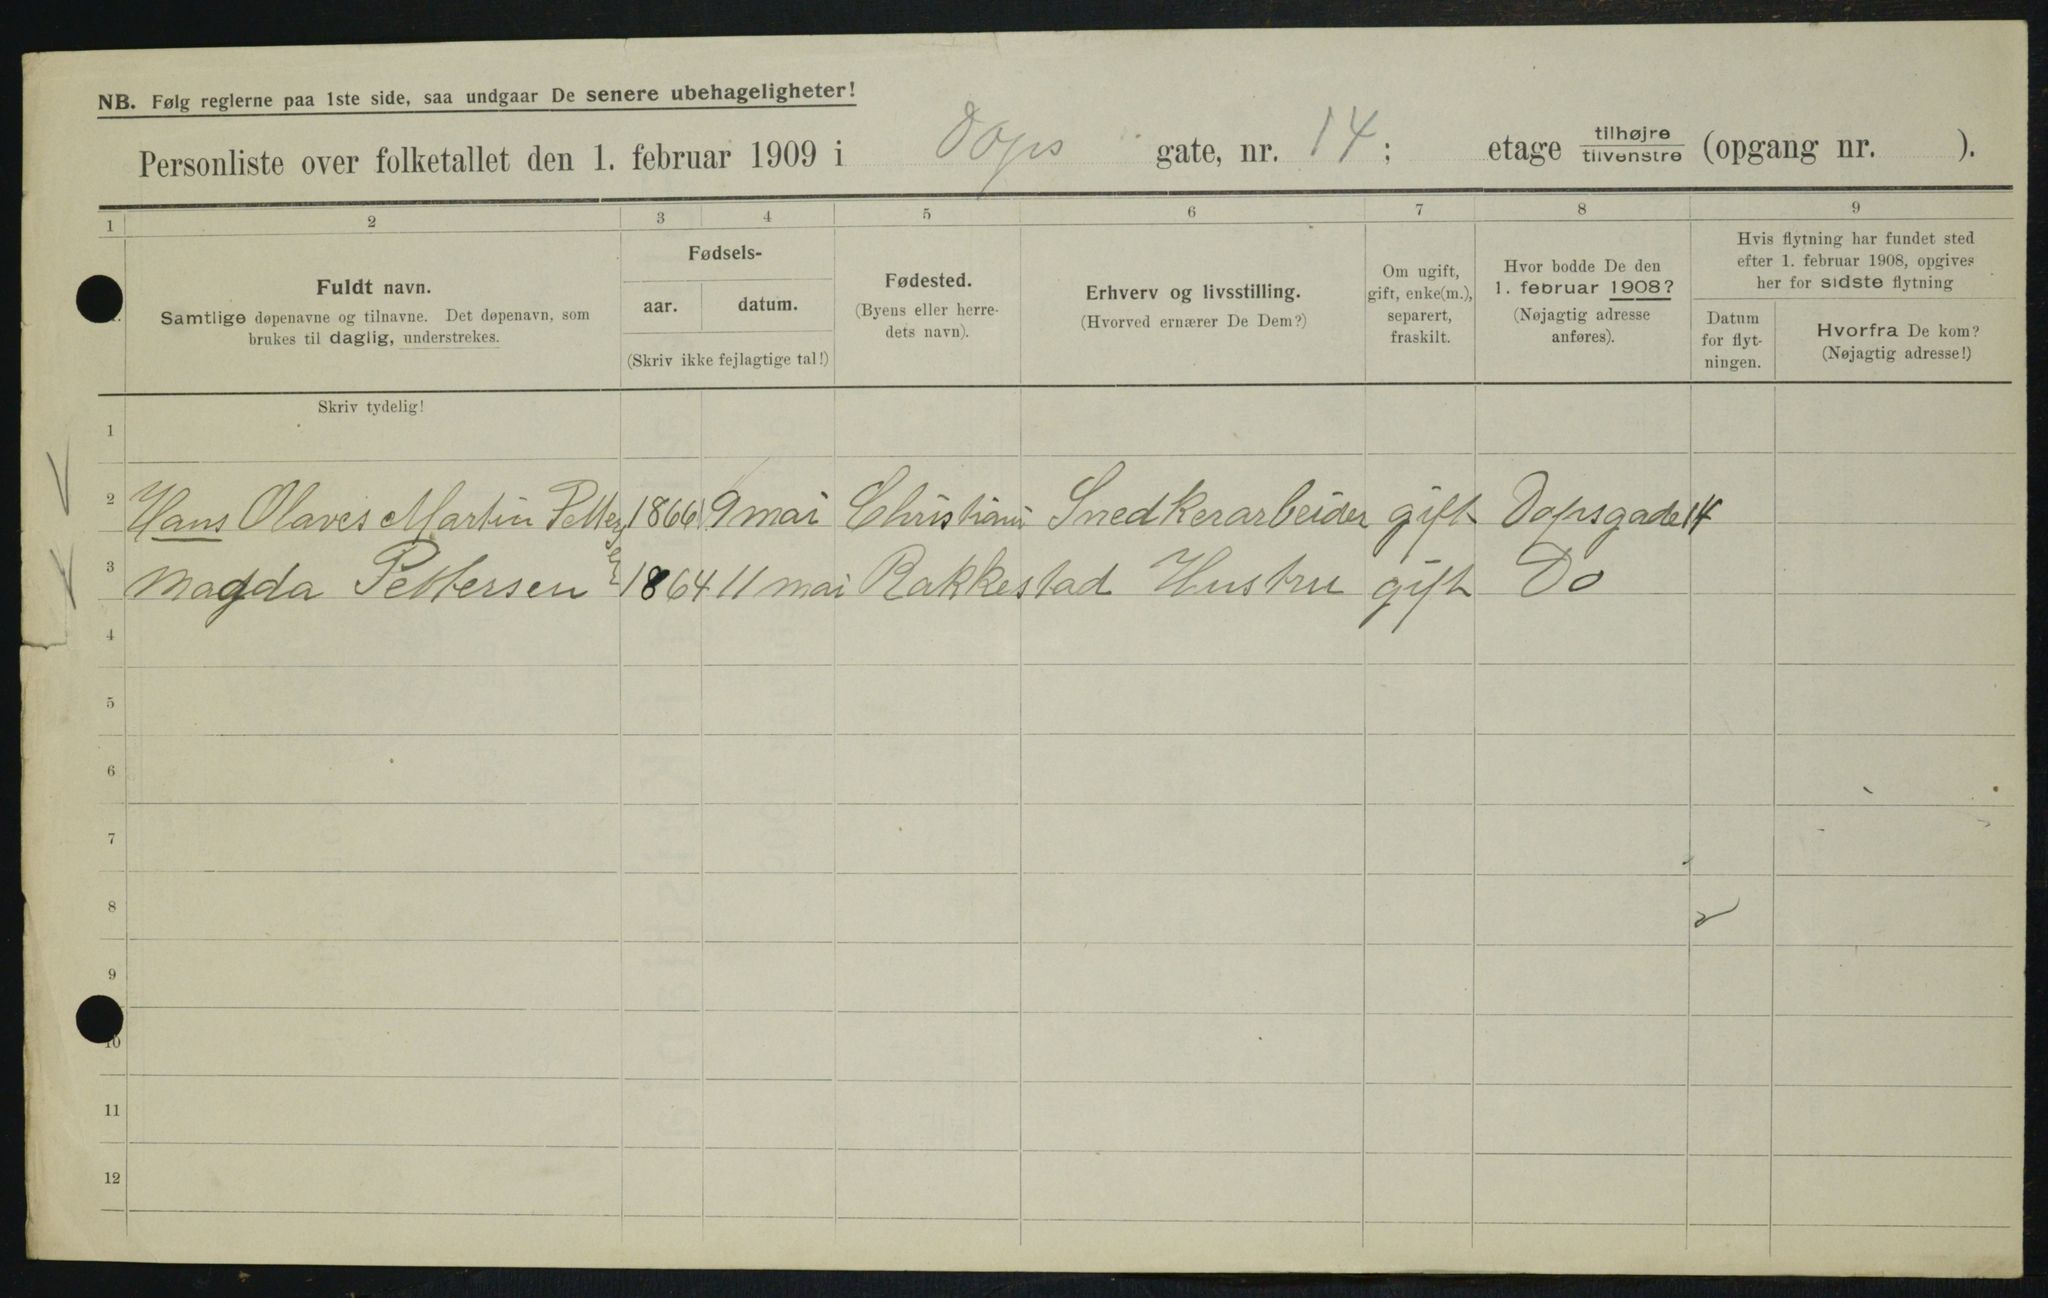 NB. Følg reglerne paa 1ste side, saa undgaar De senere ubehageligheter!
Personliste over folketallet den 1. februar 1909 i Dops gate, nr. 14; etage tilhøjre / tilvenstre (opgang nr. ).
1 2 3 4 5 6 7 8 9
Fuldt navn.
Samtlige døpenavne og tilnavne. Det døpenavn, som
brukes til daglig, understrekes.
Skriv tydelig!
Fødsels-
aar. datum.
(Skriv ikke fejlagtige tal!)
Fødested.
(Byens eller herre-
dets navn).
Erhverv og livsstilling.
(Hvorved ernærer De Dem?)
Om ugift,
gift, enke(m.),
separert,
fraskilt.
Hvor bodde De den
1. februar 1908?
(Nøjagtig adresse
anføres).
Hvis flytning har fundet sted
efter 1. februar 1908, opgives
her for sidste flytning
Datum
for flyt-
ningen.
Hvorfra De kom?
(Nøjagtig adresse!)
1
2 Hans Olaves Martin Pettersen 1866 9 mai Christiania Snedkerarbeider gift Dopsgade 14
3 Magda Pettersen 1864 11 mai Rakkestad Hustru gift Do
4
5
6
7
8
9
10
11
12